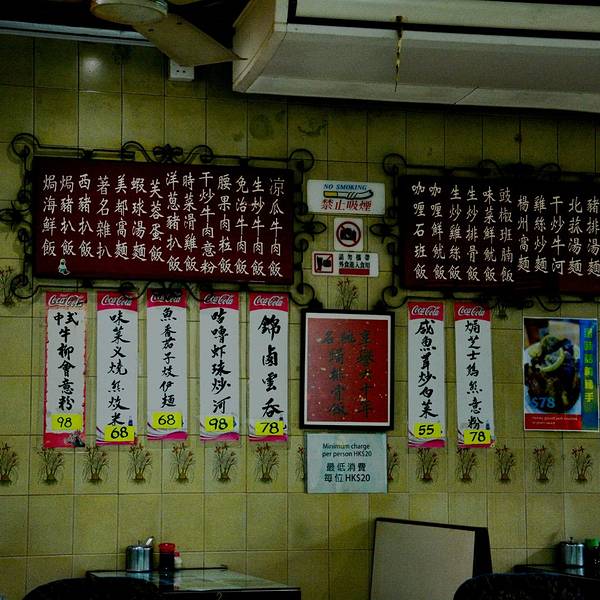 涼瓜牛肉飯
生炒牛肉飯
免治牛肉飯
腰果肉粒飯
干炒牛肉意粉
時菜滑雞飯
洋蔥豬扒飯
芙蓉蛋飯
蝦球湯麵
美都窩麵
著名雜扒
西豬扒飯
焗豬扒飯
焗海鮮飯
NO SMOKING
禁止吸煙
請勿攜帶
外食進入食用
豬排湯麵
北菰湯麵
干炒牛河
雞絲炒麵
楊州窩麵
豉椒班腩飯
味菜鮮魷飯
生炒排骨飯
生炒雞絲飯
咖喱鮮魷飯
咖喱石班飯
Coca-Cola
中式牛柳會意粉
98
Coca-Cola
味菜义燒絲炆米
68
Coca-Cola
魚香茄子炆伊麺
68
Coca-Cola
咕嚕虾球炒河
98
Coca-Cola
錦鹵雲吞
78
Coca-Cola
咸魚茸炒白菜
55
Coca-Cola
焗芝士鷄意粉
78
$78
Minimum charge
per person HK$20
最低消費
每位 HK$20